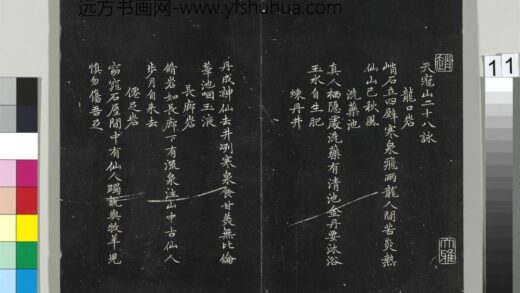 远方书画网-www.yfshuhua.com
天冠山二十八詠
龍口岩
峭石立四壁寒泉飛兩龍人間苦炎熱
仙山已秋風
洗藥池
真人栖隱處洗藥有清池金丹要沐浴
玉水自生肥
煉丹井
丹成神仙去井冽寒泉食甘美無比倫
華池咽玉液
長廊岩
脩岩如長廊下有流泉注山中古仙人
步月自來去
僊足岩
窈窕石屋間中有仙人躅說與牧羊兒
慎勿傷吾足
11
1